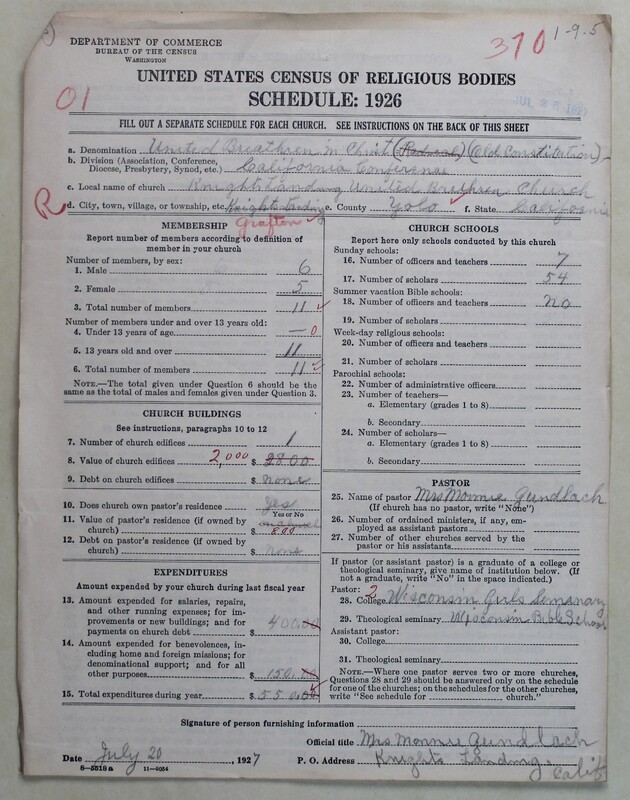 370
1-9-5
DEPARTMENT OF COMMERCE
BUREAU OF THE CENSUS
WASHINGTON
UNITED STATES CENSUS OF RELIGIOUS BODIES
01
SCHEDULE: 1926
FILL OUT A SEPARATE SCHEDULE FOR EACH CHURCH. SEE INSTRUCTIONS ON THE BACK OF THIS SHEET
a. Denomination United Breathren in Christ (Radical) (Old Constitution)
b. Division (Association, Conference, Diocese, Presbytery, Synod, etc.) California Conference
c. Local name of church Knights Landing United Brethren Church
R d. City, town, village, or township, etc. Knights Landing e. County Yolo f. State California
Grafton
MEMBERSHIP
Report number of members according to definition of
member in your church
Number of members, by sex:
1. Male 6
2. Female 5
3. Total number of members 11
Number of members under and over 13 years old:
4. Under 13 years of age — 0
5. 13 years old and over 11
6. Total number of members 11
NOTE.—The total given under Question 6 should be the
same as the total of males and females given under Question 3.
CHURCH BUILDINGS
See instructions, paragraphs 10 to 12
7. Number of church edifices 1
8. Value of church edifices 2,000 $ 2800
9. Debt on church edifices $ none
10. Does church own pastor's residence yes
Yes or No
11. Value of pastor's residence (if owned by
church) $ 800
12. Debt on pastor's residence (if owned by
church) $ none
EXPENDITURES
Amount expended by your church during last fiscal year
13. Amount expended for salaries, repairs,
and other running expenses; for im-
provements or new buildings; and for
payments on church debt $ 400.00
14. Amount expended for benevolences, in-
cluding home and foreign missions; for
denominational support; and for all
other purposes $ 150.00
15. Total expenditures during year $ 550.00
CHURCH SCHOOLS
Report here only schools conducted by this church
Sunday schools:
16. Number of officers and teachers 7
17. Number of scholars 54
Summer vacation Bible schools:
18. Number of officers and teachers no
19. Number of scholars
Week-day religious schools:
20. Number of officers and teachers
21. Number of scholars
Parochial schools:
22. Number of administrative officers
23. Number of teachers—
a. Elementary (grades 1 to 8)
b. Secondary
24. Number of scholars—
a. Elementary (grades 1 to 8)
b. Secondary
PASTOR
25. Name of pastor Mrs Monnie Gundlach
(If church has no pastor, write "None")
26. Number of ordained ministers, if any, em-
ployed as assistant pastors
27. Number of other churches served by the
pastor or his assistants
If pastor (or assistant pastor) is a graduate of a college or
theological seminary, give name of institution below. (If
not a graduate, write "No" in the space indicated.)
Pastor: 2
28. College Wisconsin Girls Semanary
29. Theological seminary Wisconsin Bible School
Assistant pastor:
30. College
31. Theological seminary
NOTE.—Where one pastor serves two or more churches,
Questions 28 and 29 should be answered only on the schedule
for one of the churches; on the schedules for the other churches,
write "See schedule for church."
Signature of person furnishing information
Official title Mrs Monnie Gundlach
Date July 20, 1927 P. O. Address Knights Landing, Calif
8—5518a 11—9034